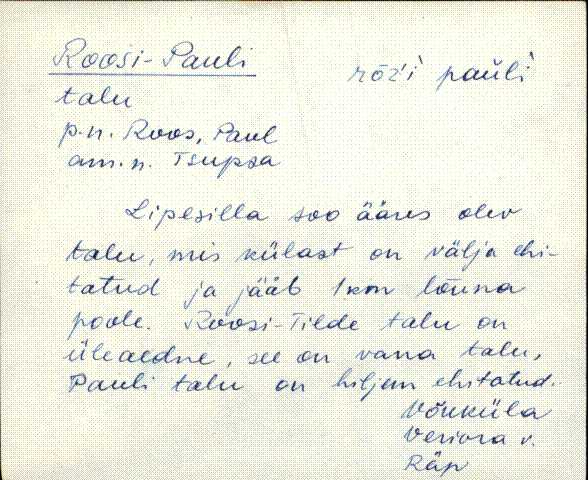 Roosi-Pauli
rōz'i pauĺi
talu
p.n. Roos, Paul
am.n. Tsupsa
Lipesilla soo ääres olev
talu, mis külast on välja ehi-
tatud ja jääb 1 km lõuna
poole. Roosi-Tilde talu on
üleaedne, see on vana talu,
Pauli talu on hiljem ehitatud.
Võuküla
Veriora v.
Räp